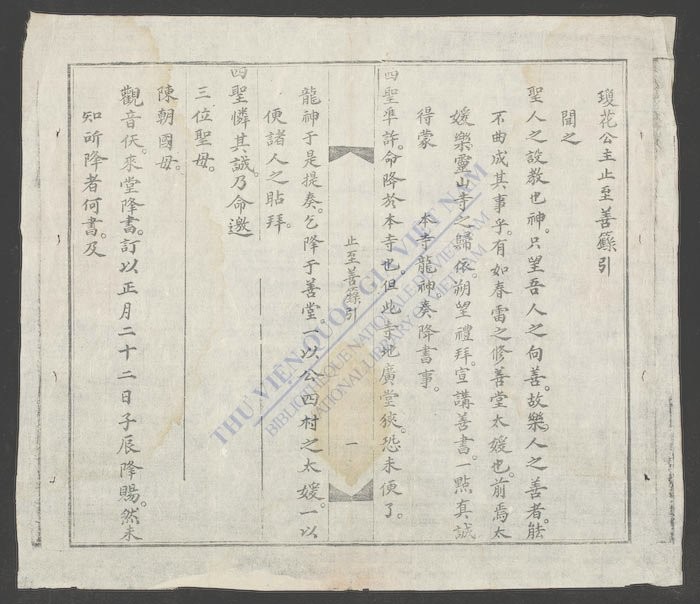 瓊花公主止至善籙引
聞之
聖人之設教也神。只望吾人之向善。故樂人之善者。能
不曲成其事乎。有如春雷之修善堂太媛也。前焉太
媛樂靈山寺之歸依。朔望禮拜。宣講善書。一點真誠
得蒙 本寺龍神奏降書事。
四聖準許。命降於本寺也。但此寺地廣堂狹。恐未便了。
止至善籙引 一
龍神于是提奏。乞降于善堂。一以公四村之太媛。一以
便諸人之貼拜。
四聖憐其誠。乃命邀
三位聖母。
陳朝國母。
觀音仸。來堂降書。訂以正月二十二日子辰降賜。然未
知所降者何書。及
THƯ VIỆN QUỐC GIA VIỆT NAM
BIBLIOTHEQUE NATIONALE DU VIETNAM
NATIONAL LIBRARY OF VIETNAM